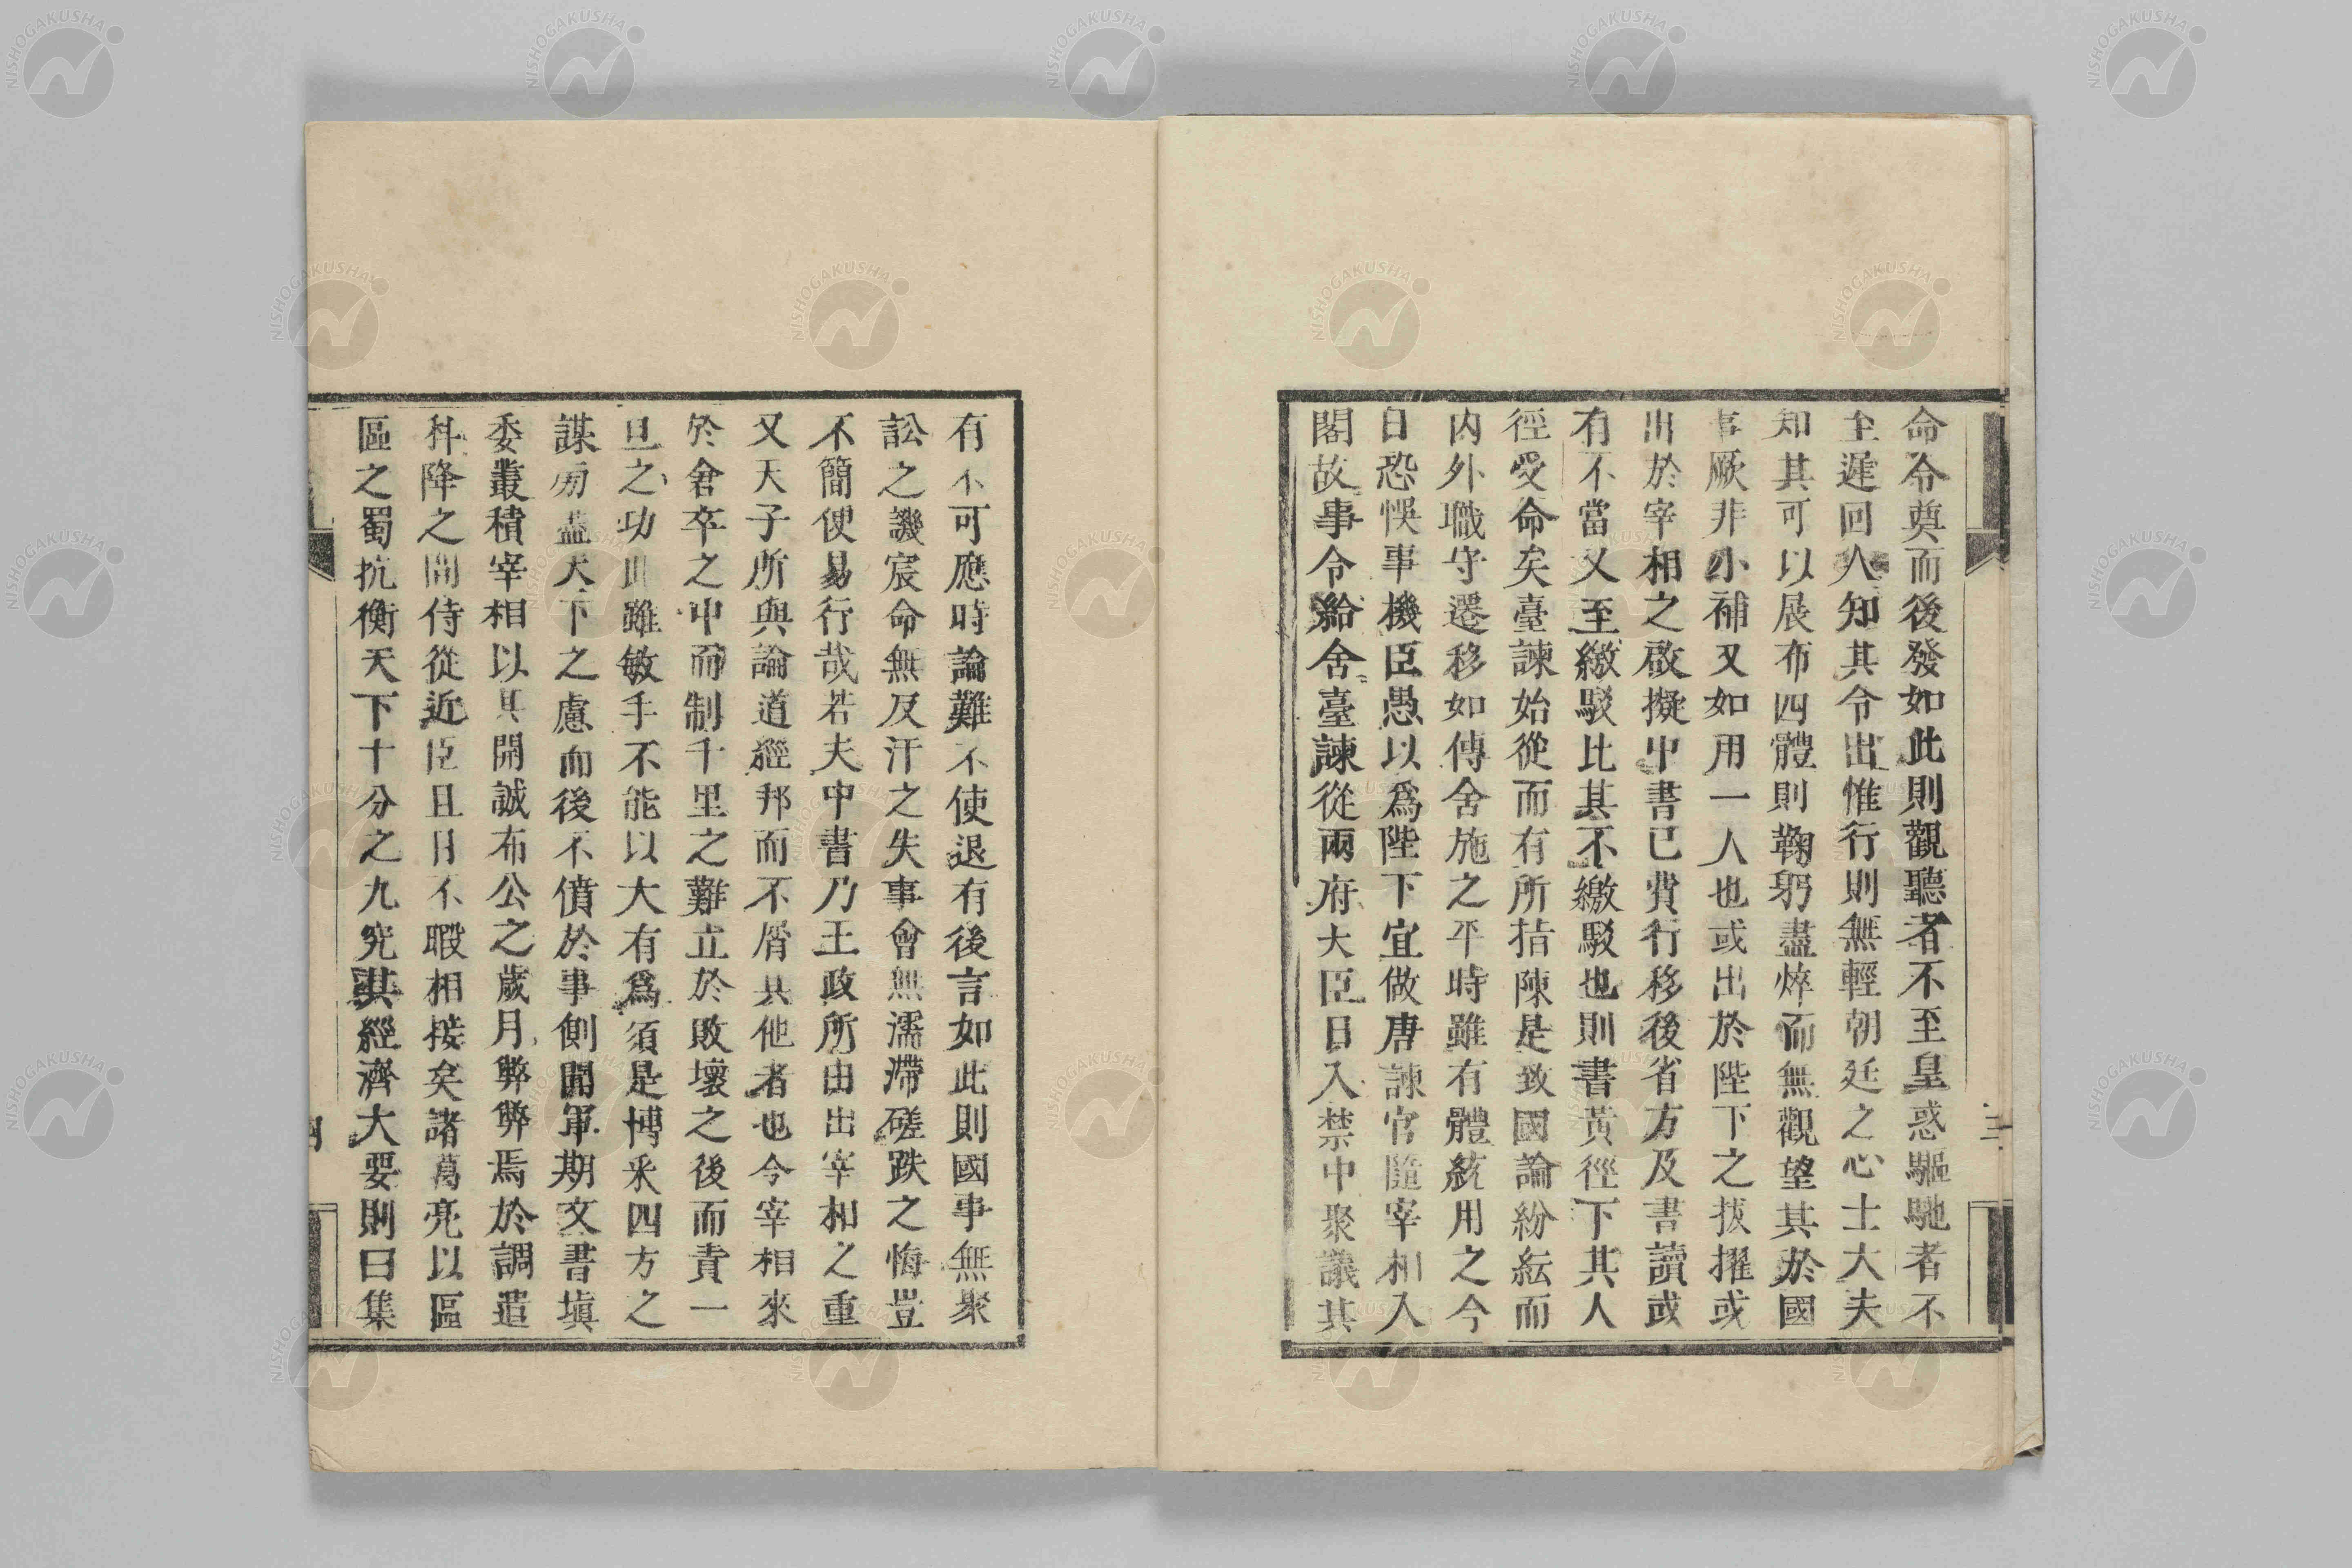 命令奠而後發如此則觀聽者不至皇惑驅馳者不
至遲回人知其令出惟行則無輕朝廷之心士大夫
知其可以展布四體則鞠躬盡焠而無觀望其於國
事厥非小補又如用一人也或出於陛下之拔擢或
出於宰相之啟擬中書已費行移後省方及書讀或
有不當又至繳駁比其不繳駁也則書黃徑下其人
徑受命矣臺諫始從而有所拮陳是致國論紛紜而
內外職守遷移如傳舍施之平時雖有體統用之今
日恐悞事機臣愚以爲陛下宜做唐諫官隨宰相入
閣故事令給舍臺諫從兩府大臣日入禁中聚議其
三
有不可應時論難不使退有後言如此則國事無聚
訟之譏宸命無反汗之失事會無濡滯磋跌之悔豈
不簡便易行哉若夫中書乃王政所由出宰相之重
又天子所與論道經邦而不屑其他者也今宰相來
於倉卒之中而制千里之難立於敗壞之後而責一
旦之功此雖敏手不能以大有爲須是博采四方之
謀旁盡天下之慮而後不僨於事側聞軍期文書塡
委叢積宰相以其開誠布公之歲月弊弊焉於調遣
科降之間侍從近臣且日不暇相接矣諸葛亮以區
區之蜀抗衡天下十分之九究其經濟大要則曰集
四
NISHOGAKUSHA